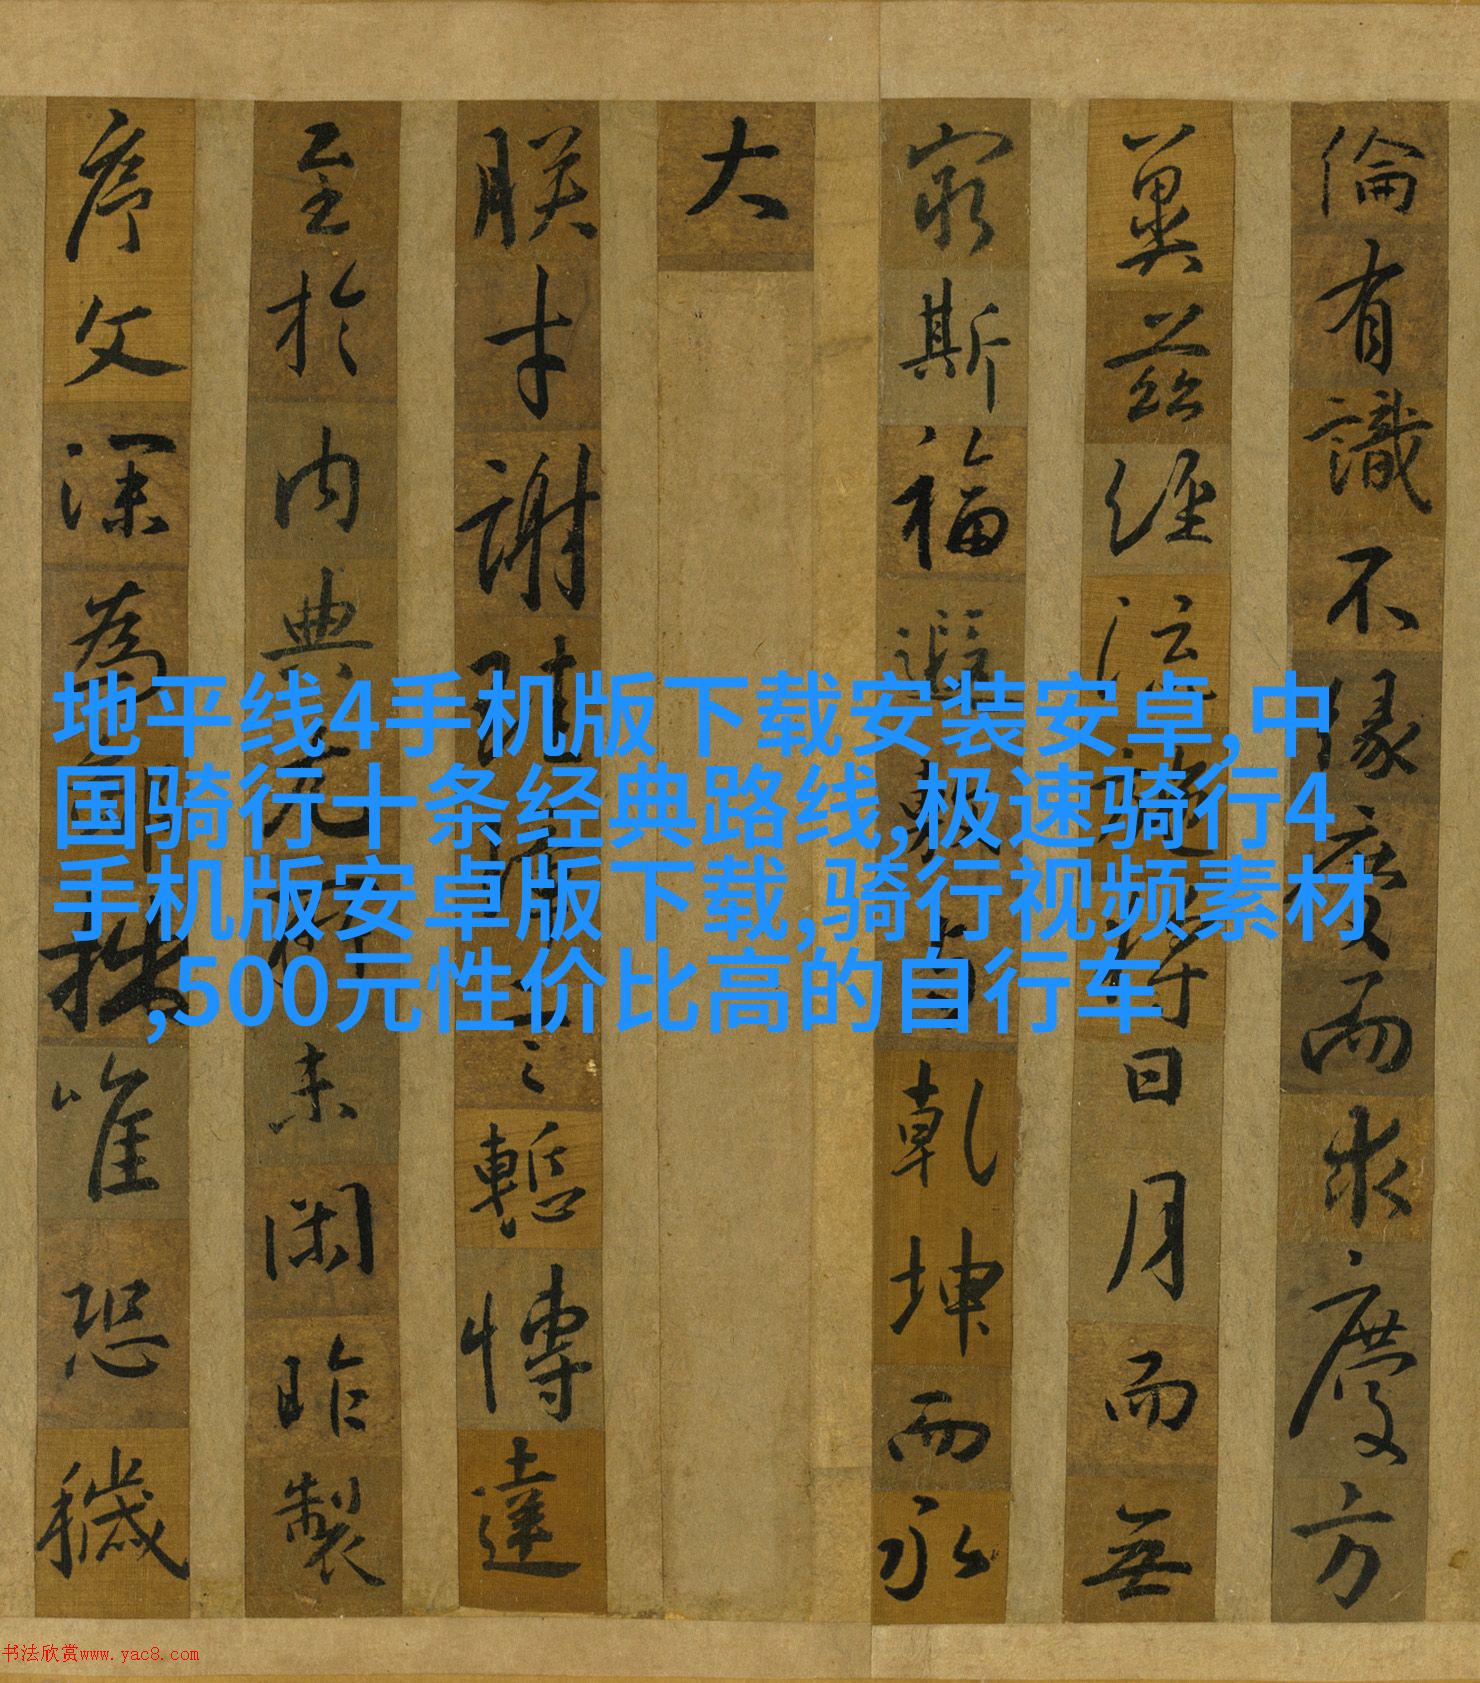 倫有識不緣慶而求慶方
冀茲經流施將日月而無
窮斯福遐敷與乾坤而永
大
朕才謝珪璋言慙博達
至於內典尤所未閑昨製
序文深為鄙拙唯恐穢
地平线4手机版下载安装安卓,中
国骑行十条经典路线,极速骑行4
手机版安卓版下载,骑行视频素材
,500元性价比高的自行车
书法欣赏www.yac8.com